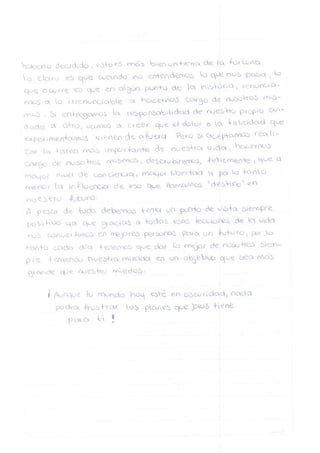 haberlo decidido, esto es más bien un tema de la fortuna.
Lo claro es que cuando no entendemos lo que nos pasa, lo
que ocurre es que en algún punto de la historia, renuncia-
mos a lo irrenunciable a hacernos cargo de nosotros mis-
mos. Si entregamos la responsabilidad de nuestro propio cui-
dado a otro, vamos a creer que el dolor o la felicidad que
experimentamos vienen de afuera. Pero si aceptamos reali-
zar la tarea más importante de nuestra vida, hacernos
cargo de nosotros mismos, descubriremos, felizmente, que a
mayor nivel de conciencia, mayor libertad y por lo tanto
menor la influencia de eso que llamamos "destino" en
nuestro futuro.
A pesar de todo debemos tener un punto de vista siempre
positivo ya que gracias a todas esas lecciones de la vida
nos convertimos en mejores personas para un futuro, por lo
tanto cada día tenemos que dar lo mejor de nosotros siem-
pre teniendo nuestra mirada en un objetivo que sea más
grande que nuestro miedos.
¡Aunque tu mundo hoy esté en oscuridad, nada
podra frustrar los planes que Dios tiene
para ti!